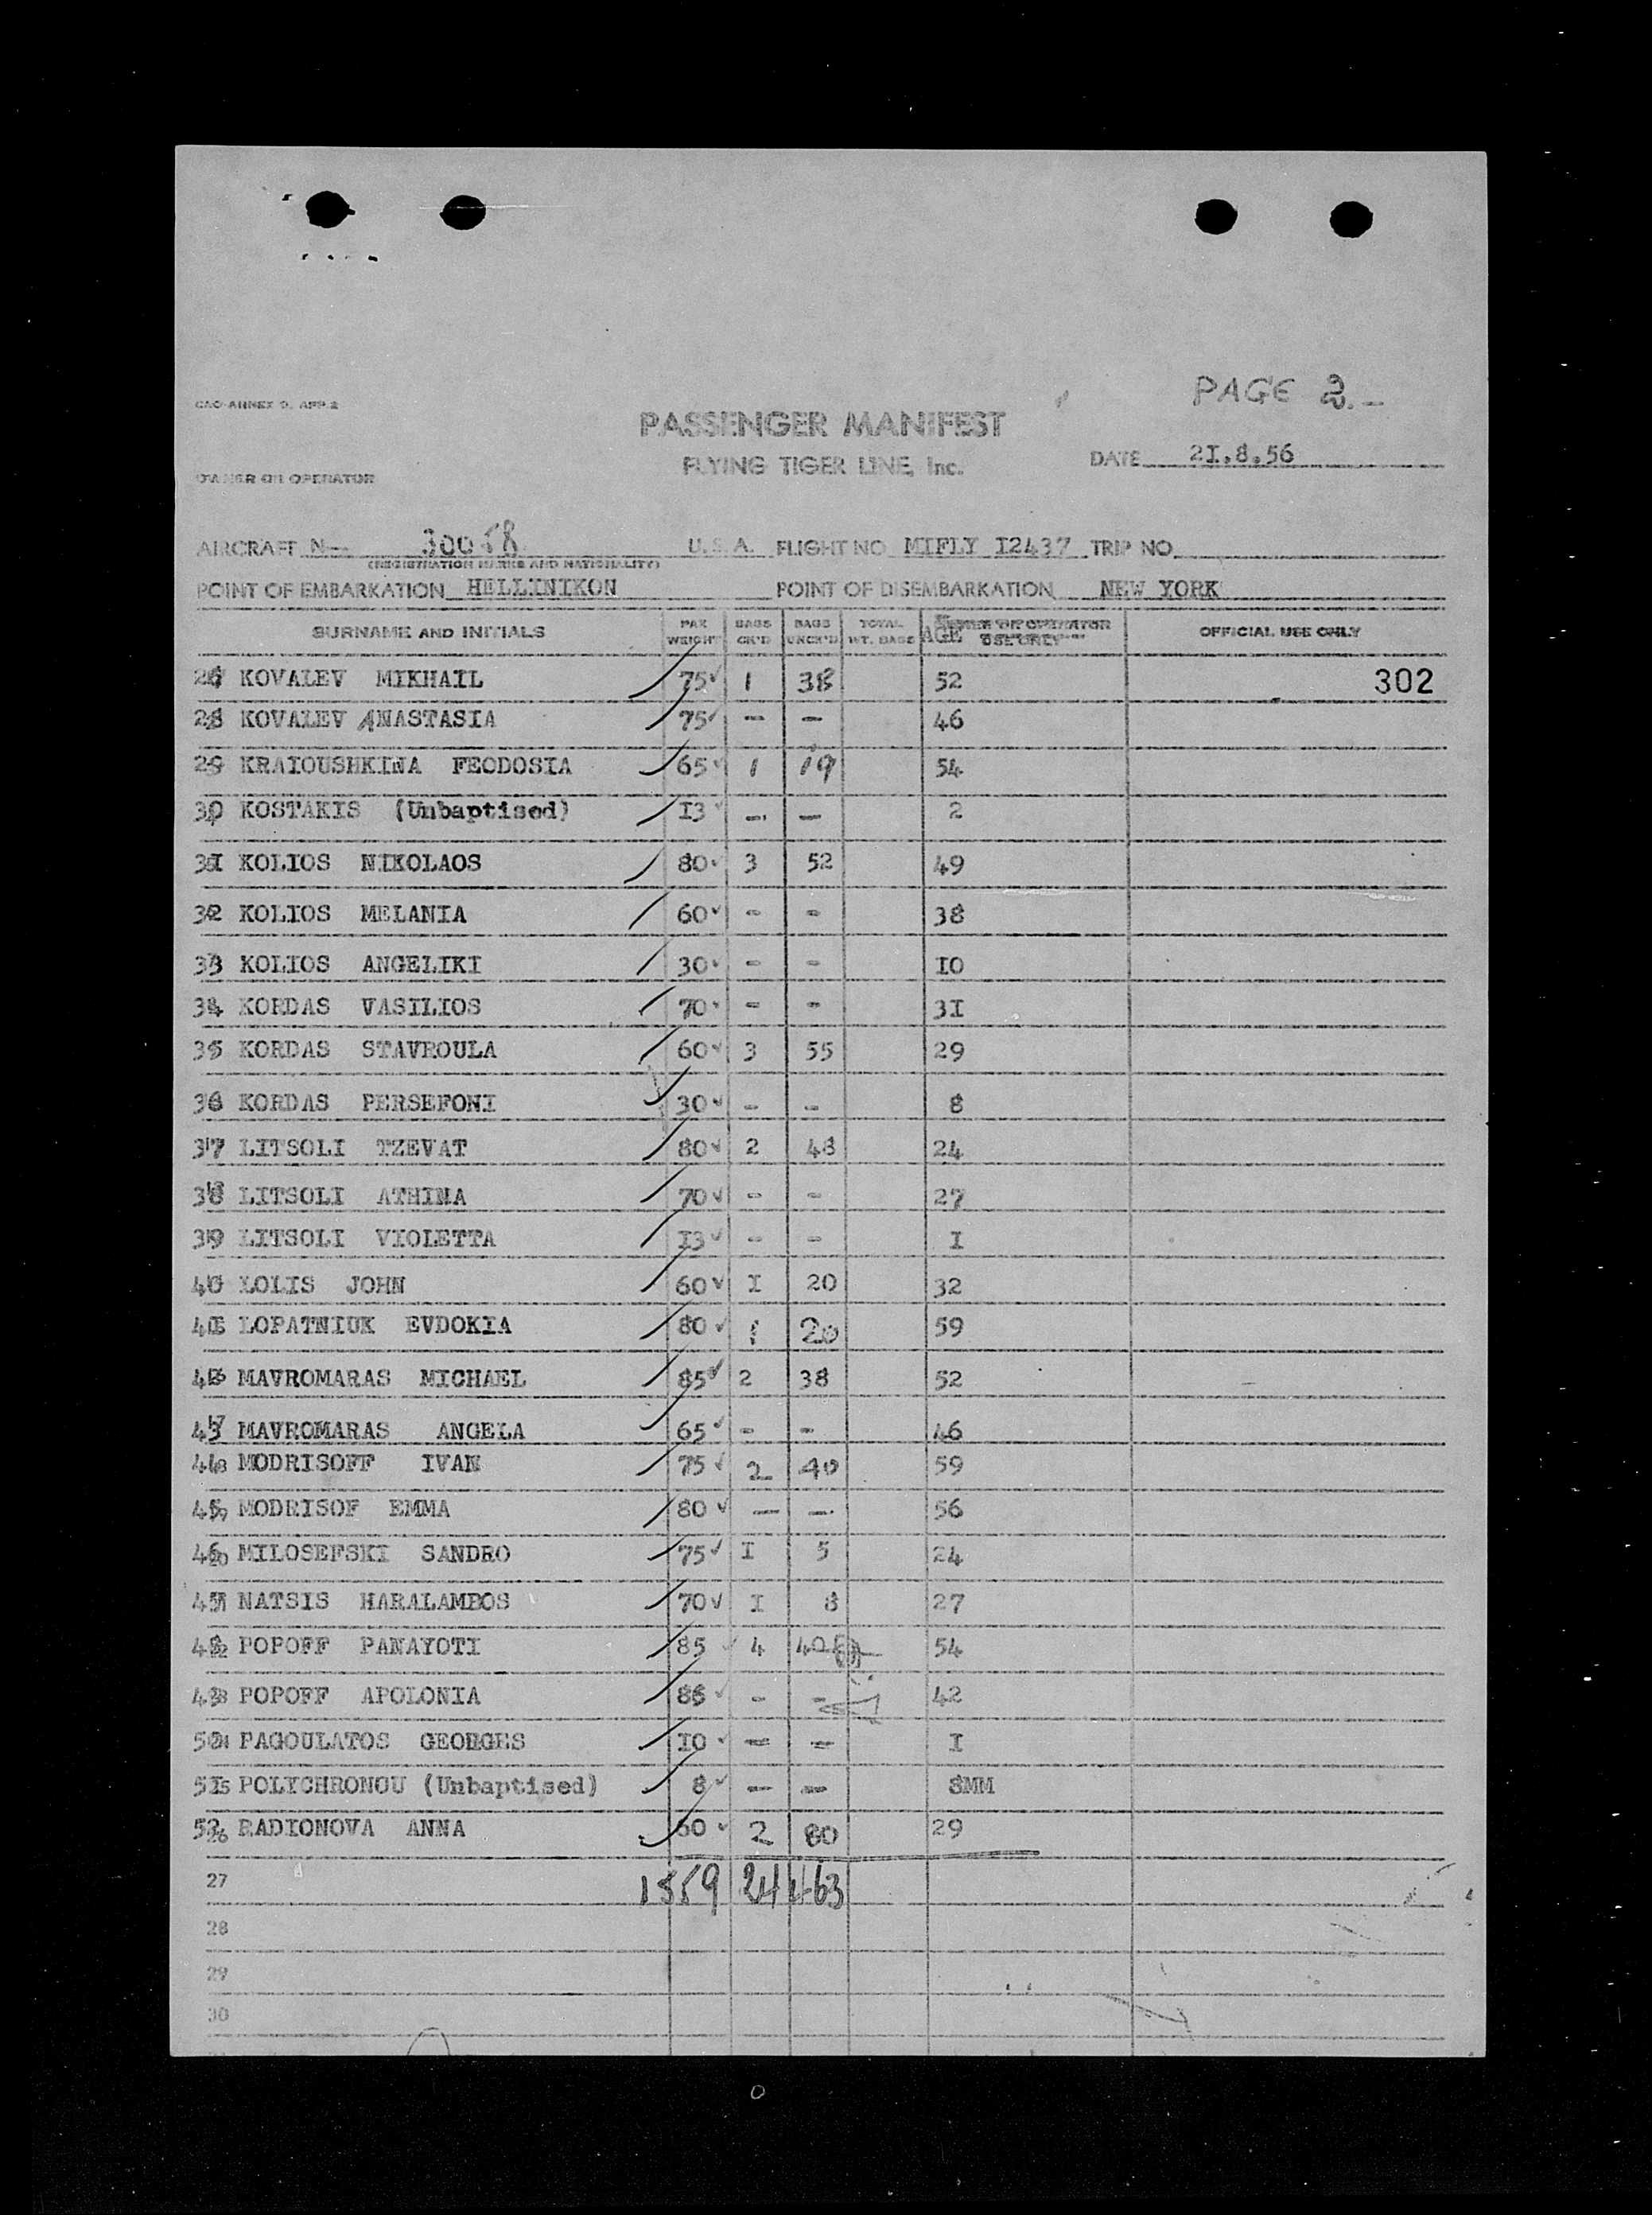 PAGE 2.-
CAO ANNEX 9. APP. 2
PASSENGER MANIFEST
DATE 2I.8.56
FLYING TIGER LINE, Inc.
OWNER OR OPERATOR
AIRCRAFT N 30058 U.S.A. FLIGHT NO MIFLY I2437 TRIP NO.
(REGISTRATION MARKS AND NATIONALITY)
POINT OF EMBARKATION HELLINIKON POINT OF DISEMBARKATION NEW YORK
SURNAME AND INITIALS PAX WEIGHT BAGS CK'D BAGS UNCK'D TOTAL WT. BAGS AGE OWNER OR OPERATOR USE ONLY OFFICIAL USE ONLY
KOVALEV MIKHAIL 75 1 38 52 302
28 KOVALEV ANASTASIA 75 - - 46
29 KRAIOUSHKINA FEODOSIA 65 1 19 54
30 KOSTAKIS (Unbaptised) I3 - - 2
3I KOLIOS NIKOLAOS 80 3 52 49
32 KOLIOS MELANIA 60 - - 38
33 KOLIOS ANGELIKI 30 - - IO
34 KORDAS VASILIOS 70 - - 3I
35 KORDAS STAVROULA 60 3 55 29
36 KORDAS PERSEFONI 30 - - 8
37 LITSOLI TZEVAT 80 2 48 24
38 LITSOLI ATHINA 70 - - 27
39 LITSOLI VIOLETTA I3 - - I
40 LOLIS JOHN 60 I 20 32
4I LOPATNIUK EVDOKIA 80 1 20 59
42 MAVROMARAS MICHAEL 85 2 38 52
43 MAVROMARAS ANGELA 65 - - 46
44 MODRISOFF IVAN 75 2 40 59
45 MODRISOF EMMA 80 - - 56
46 MILOSEFSKI SANDRO 75 I 5 24
47 NATSIS HARALAMBOS 70 I 8 27
48 POPOFF PANAYOTI 85 4 40 54
49 POPOFF APOLONIA 85 - - 42
50 PAGOULATOS GEORGES IO - - I
5I POLYCHRONOU (Unbaptised) 8 - - 8MM
52 RADIONOVA ANNA 60 2 80 29
27 1559 24 463
28
29
30